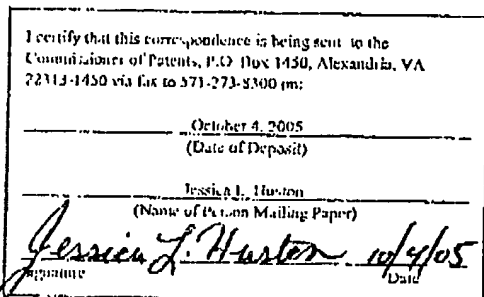 I certify that this correspondence is being sent to the
Commissioner of Patents, P.O. Box 1450, Alexandria, VA
22313-1450 via fax to 571-273-8300 on:
October 4, 2005
(Date of Deposit)
Jessica L. Huston
(Name of Person Mailing Paper)
Jessica L. Huston 10/4/05
Signature Date